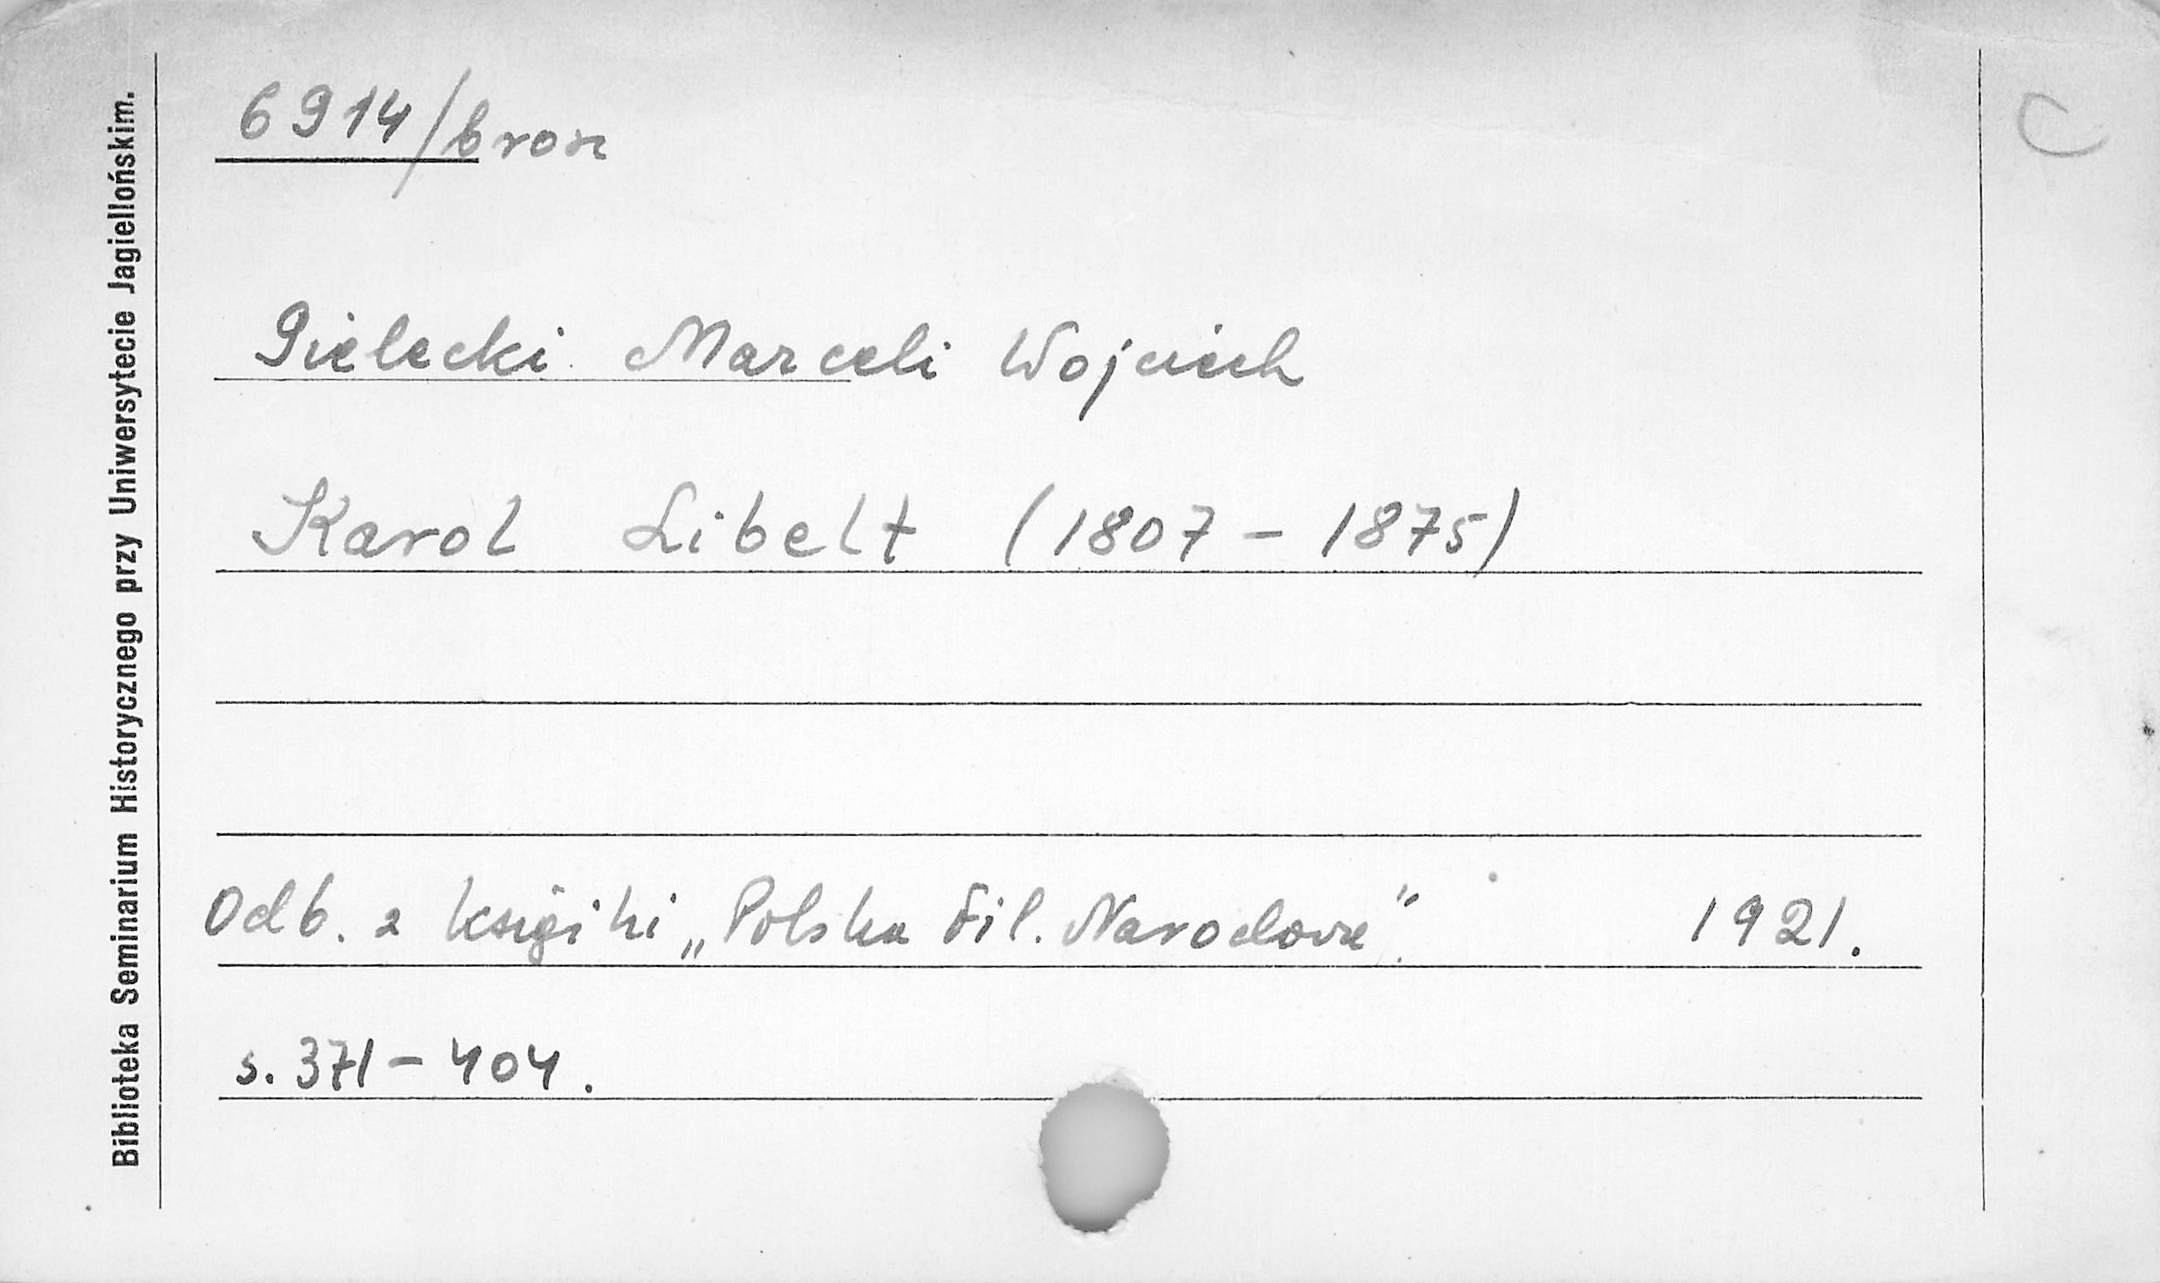 6914/bron
C
Gielecki Marceli Wojciech
Karol Libelt (1807 - 1875)
Odb. z książki „Polska Fil. Narodowa". 1921.
s. 371 - 404.
Biblioteka Seminarium Historycznego przy Uniwersytecie Jagiellońskim.